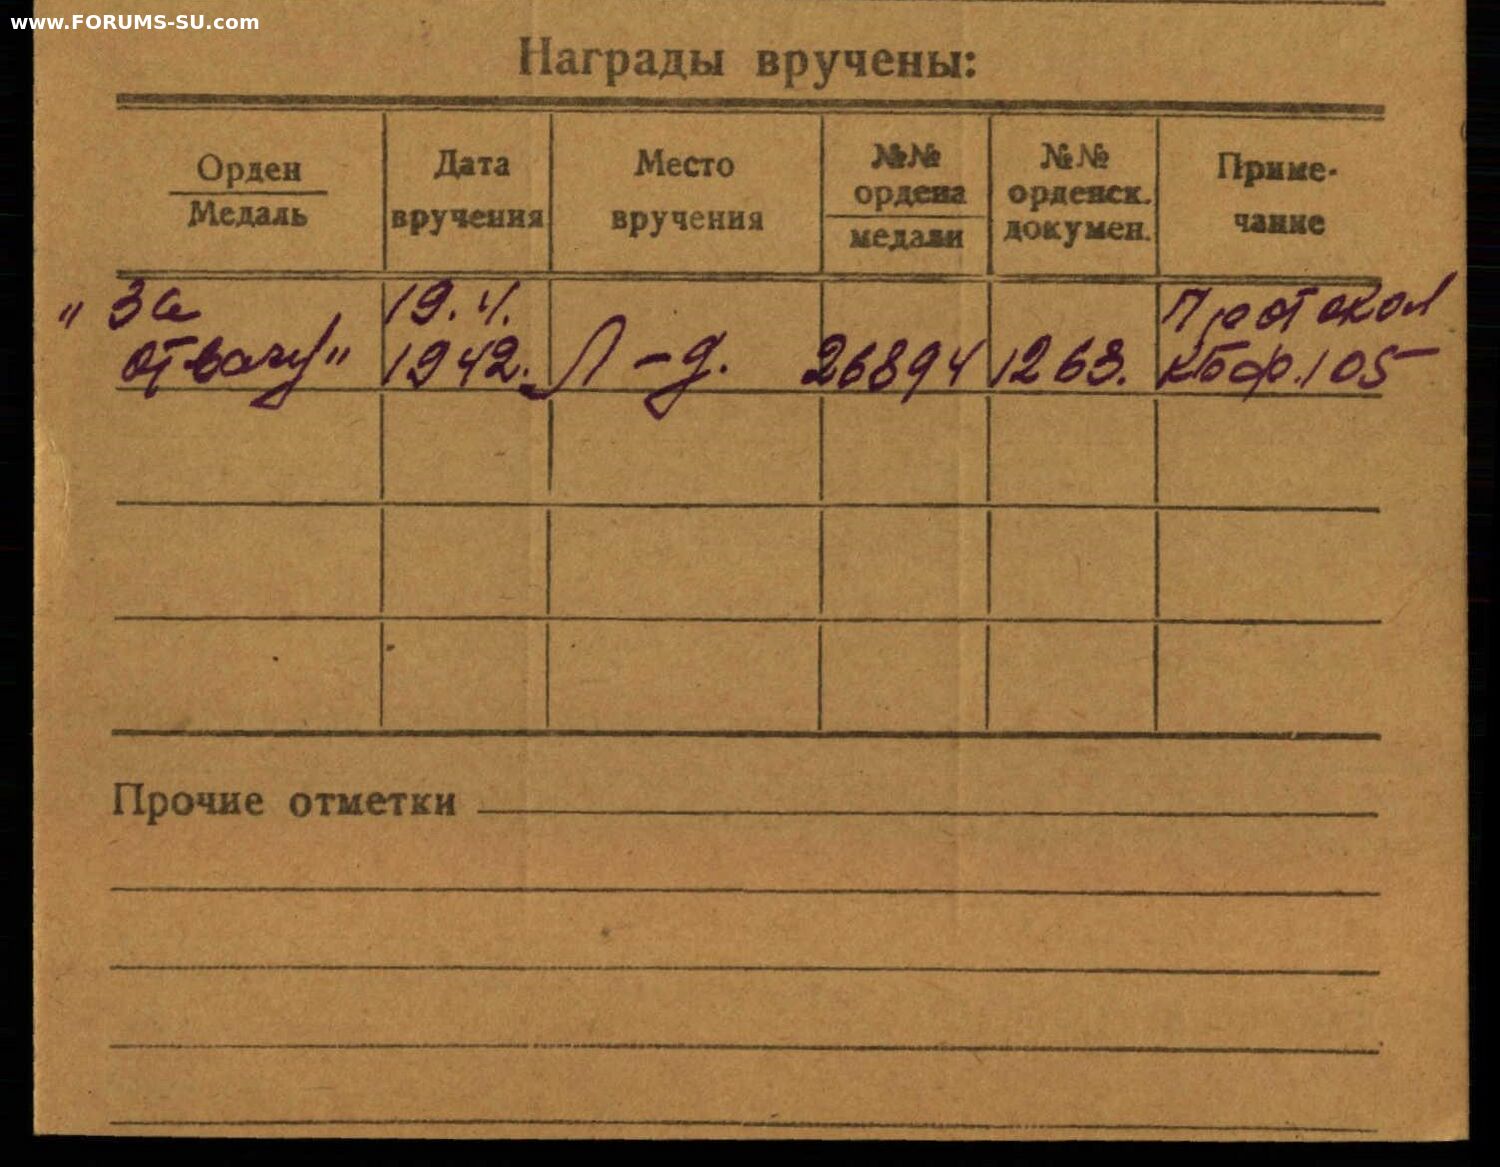 www.FORUMS-SU.com
Награды вручены:
Орден
Медаль
Дата
вручения
Место
вручения
№№
ордена
медали
№№
орденск.
докумен.
Приме-
чание
"За
отвагу"
19. 4.
1942.
Л-д.
26894
1268.
Протокол
КБФ. 105
Прочие отметки